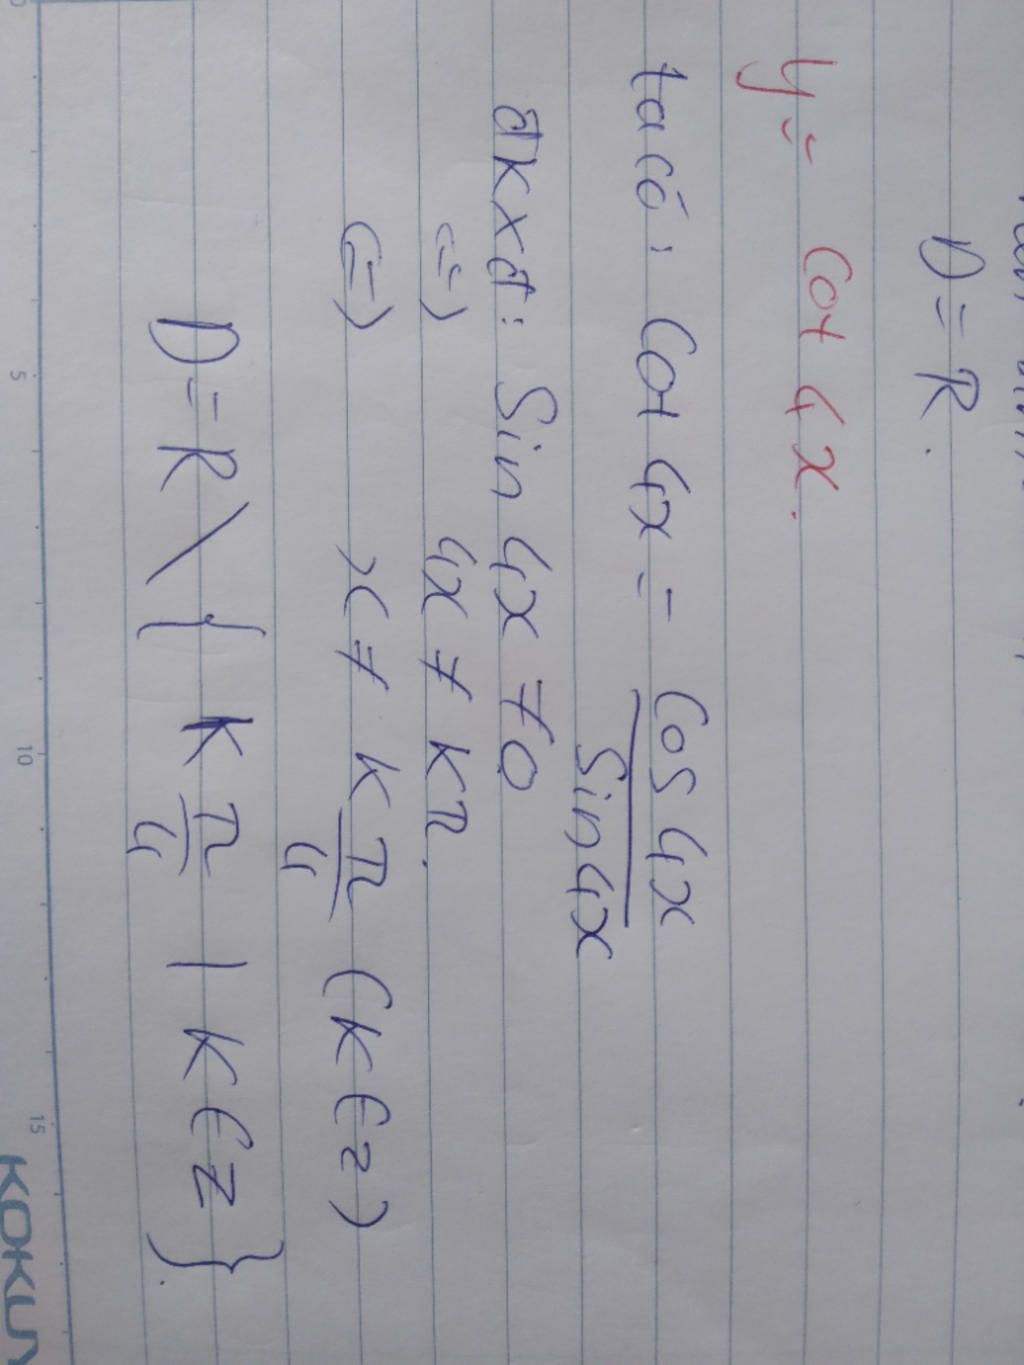 D = R.
y = cot 4x.
ta có: cot 4x = cos 4x / sin 4x
đkxđ: sin 4x ≠ 0
<=> 4x ≠ kπ.
<=> x ≠ k π/4 (k ∈ z)
D = R \ { k π/4 | k ∈ z }.
5 10 15
KOKUY